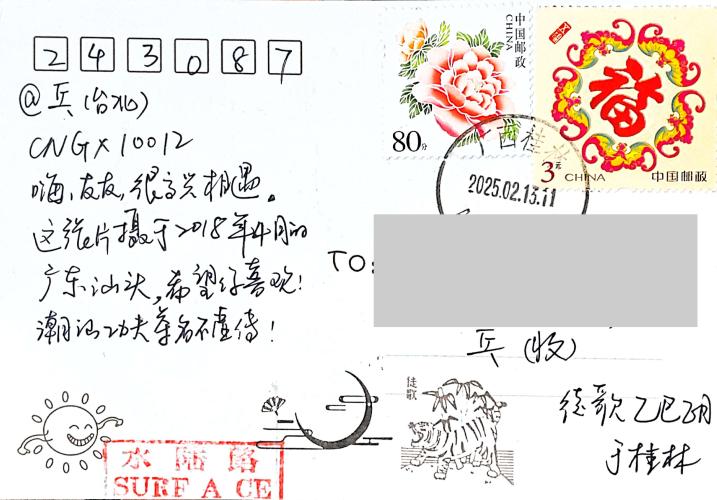 243087
@兵(台北)
CNGX10012
嗨,友友,很高兴相遇。
这张片摄于2018年4月的
广东汕头,希望你喜欢!
潮汕功夫茶名不虚传!
中国邮政
80分
CHINA
福
3元
CHINA
中国邮政
广西桂林
2025.02.13.11
TO:
兵(收)
徒歌
徒歌乙巳2月
于桂林
水陆路
SURFACE